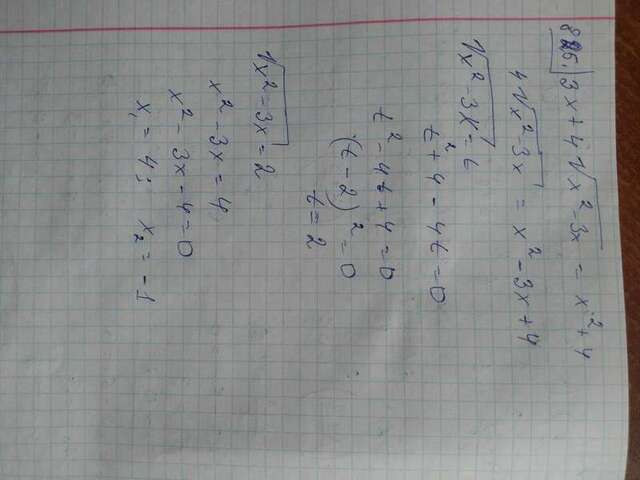 825. 3x + 4√x² - 3x = x² + 4
4√x² - 3x = x² - 3x + 4
√x² - 3x = t
t² + 4 - 4t = 0
t² - 4t + 4 = 0
(t - 2)² = 0
t = 2
√x² - 3x = 2
x² - 3x = 4
x² - 3x - 4 = 0
x₁ = 4; x₂ = -1